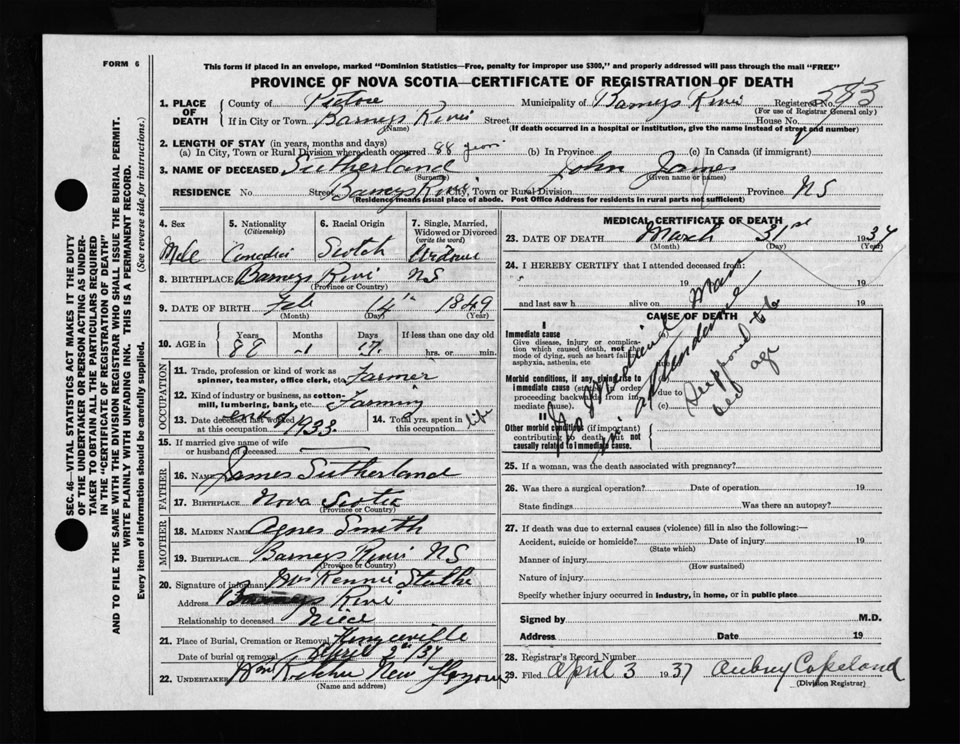 FORM 6
This form if placed in an envelope, marked "Dominion Statistics—Free, penalty for improper use $300," and properly addressed will pass through the mail "FREE"
PROVINCE OF NOVA SCOTIA—CERTIFICATE OF REGISTRATION OF DEATH
1. PLACE OF DEATH
County of Pictou Municipality of Barneys River Registered No. 583
(For use of Registrar General only)
If in City or Town Barneys River Street House No.
(Name) (If death occurred in a hospital or institution, give the name instead of street and number)
2. LENGTH OF STAY (in years, months and days)
(a) In City, Town or Rural Division where death occurred 88 years (b) In Province (c) In Canada (if immigrant)
3. NAME OF DECEASED Sutherland John James
(Surname) (Given name or names)
RESIDENCE No. Street Barneys River City, Town or Rural Division Province NS
(Residence means usual place of abode. Post Office Address for residents in rural parts not sufficient)
4. Sex
Male
5. Nationality
(Citizenship)
6. Racial Origin
Scotch
7. Single, Married, Widowed or Divorced
(write the word)
8. BIRTHPLACE Barneys River NS
(Province or Country)
9. DATE OF BIRTH Feb 14th 1849
(Month) (Day) (Year)
10. AGE in
Years Months Days If less than one day old
88 1 17 hrs. or min.
OCCUPATION
11. Trade, profession or kind of work as spinner, teamster, office clerk, etc. Farmer
12. Kind of industry or business, as cotton-mill, lumbering, bank, etc. Farming
13. Date deceased last worked at this occupation 1933
14. Total yrs. spent in this occupation life
15. If married give name of wife or husband of deceased
FATHER
16. NAME James Sutherland
17. BIRTHPLACE Nova Scotia
(Province or Country)
MOTHER
18. MAIDEN NAME Agnes Smith
19. BIRTHPLACE Barneys River NS
(Province or Country)
20. Signature of informant Mrs Kennie
Address Barneys River
Relationship to deceased Niece
21. Place of Burial, Cremation or Removal
Date of burial or removal April 2nd/37
22. UNDERTAKER Wm Ritchie New Glasgow
(Name and address)
MEDICAL CERTIFICATE OF DEATH
23. DATE OF DEATH March 31st 1937
(Month) (Day) (Year)
24. I HEREBY CERTIFY that I attended deceased from:
19 to 19
and last saw h alive on 19
CAUSE OF DEATH
I
Immediate cause
Give disease, injury or complication which caused death, not the mode of dying, such as heart failure, asphyxia, asthenia, etc
Morbid conditions, if any, giving rise to immediate cause (stated in order proceeding backwards from immediate cause).
II
Other morbid conditions (if important) contributing to death but not causally related to immediate cause.
(a)
due to
(b)
due to
(c)
No Medical Man
in attendance
Supposed to be
old age
25. If a woman, was the death associated with pregnancy?
26. Was there a surgical operation? Date of operation 19
State findings Was there an autopsy?
27. If death was due to external causes (violence) fill in also the following:—
Accident, suicide or homicide? Date of injury 19
(State which)
Manner of injury
(How sustained)
Nature of injury
Specify whether injury occurred in industry, in home, or in public place
Signed by M.D.
Address Date 19
28. Registrar's Record Number
29. Filed April 3 1937 Aubrey Copeland
(Division Registrar)
SEC. 46—VITAL STATISTICS ACT MAKES IT THE DUTY
OF THE UNDERTAKER OR PERSON ACTING AS UNDER-
TAKER TO OBTAIN ALL THE PARTICULARS REQUIRED
IN THE "CERTIFICATE OF REGISTRATION OF DEATH"
AND TO FILE THE SAME WITH THE DIVISION REGISTRAR WHO SHALL ISSUE THE BURIAL PERMIT.
WRITE PLAINLY WITH UNFADING INK. THIS IS A PERMANENT RECORD.
Every item of information should be carefully supplied. (See reverse side for instructions.)